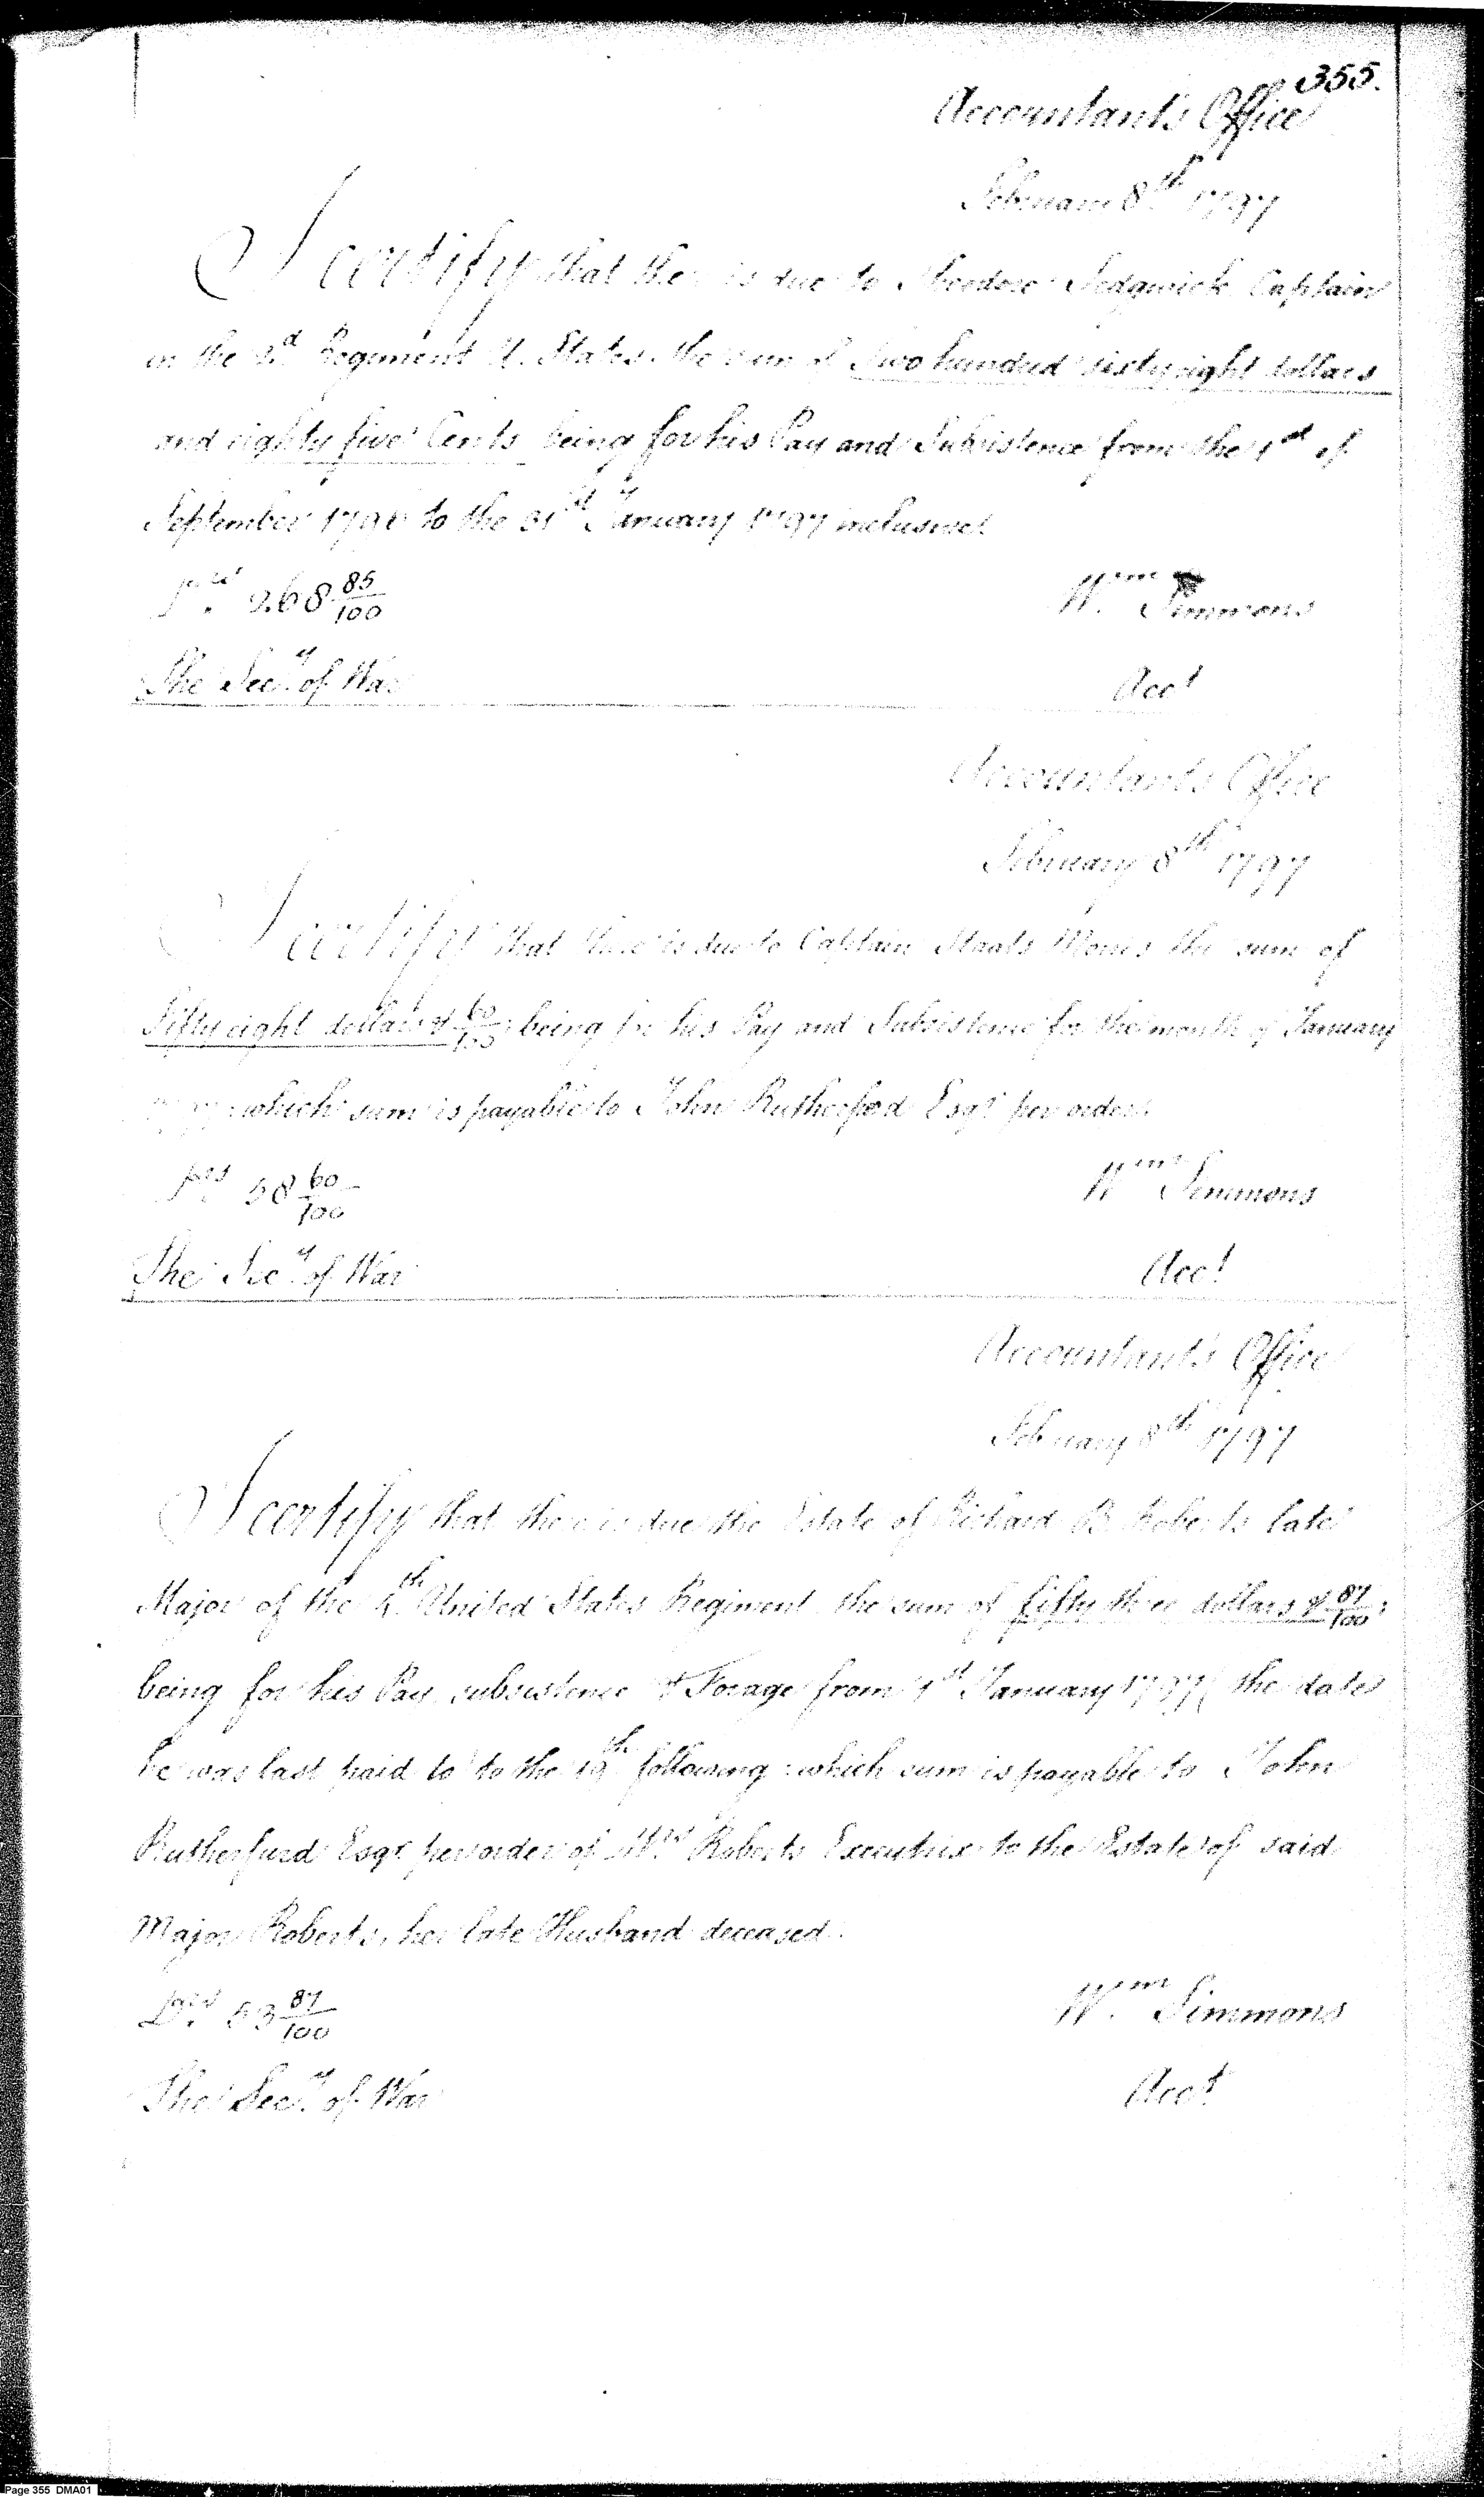 355.
Accountant's Office
February 8th 1797
I certify that there is due to Theodore Sedgwick Captain
in the 2d Regiment U. States the sum of Two hundred sixty eight dollars
and eighty five Cents being for his Pay and Subsistence from the 1st of
September 1796 to the 31st January 1797 inclusive.
268 85/100
Wm Simmons
The Secy of War
Acct
Accountant's Office
February 8th 1797
I certify that there is due to Captain Staats Morris the sum of
Fifty eight dollars & 60/100; being for his Pay and Subsistence for the month of January
1797; which sum is payable to John Rutherford Esqr per order.
58 60/100
Wm Simmons
The Secy of War
Acct
Accountant's Office
February 8th 1797
I certify that there is due the Estate of Richard B. Roberts late
Major of the 4th United States Regiment the sum of fifty three dollars & 87/100;
being for his Pay, subsistence & Forage from 1st January 1797 (the date
he was last paid to to the 19th following: which sum is payable to John
Rutherfurd Esqr per order of Mrs Roberts Executrix to the Estate of said
Major Roberts, her late Husband deceased.
Drs 53 87/100
Wm Simmons
The Secy of War
Acct
Page 355 DMA01